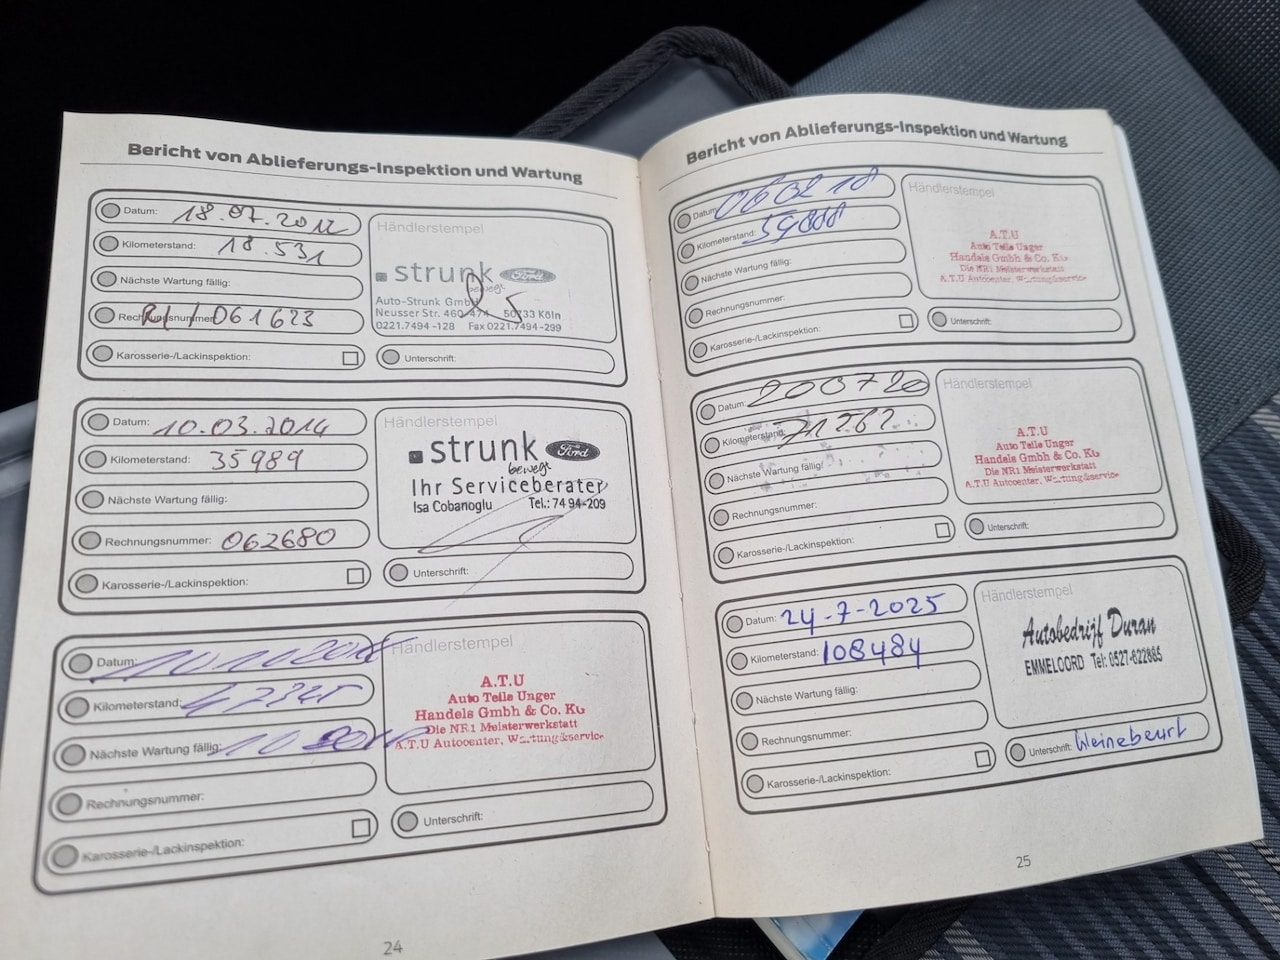 Bericht von Ablieferungs-Inspektion und Wartung
Datum: 18.07.2012
Kilometerstand: 18.531
Nächste Wartung fällig:
Rechnungsnummer: R1/061623
Karosserie-/Lackinspektion:
Händlerstempel
strunk Ford
bewegt
Auto-Strunk GmbH
Neusser Str. 460-474 50733 Köln
0221.7494-128 Fax 0221.7494-299
Unterschrift:
Datum: 10.03.2014
Kilometerstand: 35989
Nächste Wartung fällig:
Rechnungsnummer: 062680
Karosserie-/Lackinspektion:
Händlerstempel
strunk Ford
bewegt
Ihr Serviceberater
Isa Cobanoglu Tel.: 74 94-209
Unterschrift:
Datum:
Kilometerstand:
Nächste Wartung fällig:
Rechnungsnummer:
Karosserie-/Lackinspektion:
Händlerstempel
A.T.U
Auto Teile Unger
Handels Gmbh & Co. KG
Die NR1 Meisterwerkstatt
A.T.U Autocenter, Wartung&service
Unterschrift:
24
Bericht von Ablieferungs-Inspektion und Wartung
Datum: 060218
Kilometerstand:
Nächste Wartung fällig:
Rechnungsnummer:
Karosserie-/Lackinspektion:
Händlerstempel
A.T.U
Auto Teile Unger
Handels Gmbh & Co. KG
Die NR1 Meisterwerkstatt
A.T.U Autocenter, Wartung&service
Unterschrift:
Datum: 200720
Kilometerstand: 71262
Nächste Wartung fällig:
Rechnungsnummer:
Karosserie-/Lackinspektion:
Händlerstempel
A.T.U
Auto Teile Unger
Handels Gmbh & Co. KG
Die NR1 Meisterwerkstatt
A.T.U Autocenter, Wartung&service
Unterschrift:
Datum: 24-7-2025
Kilometerstand: 108484
Nächste Wartung fällig:
Rechnungsnummer:
Karosserie-/Lackinspektion:
Händlerstempel
Autobedrijf Duran
EMMELOORD Tel: 0527-622885
Unterschrift: kleinebeurt
25